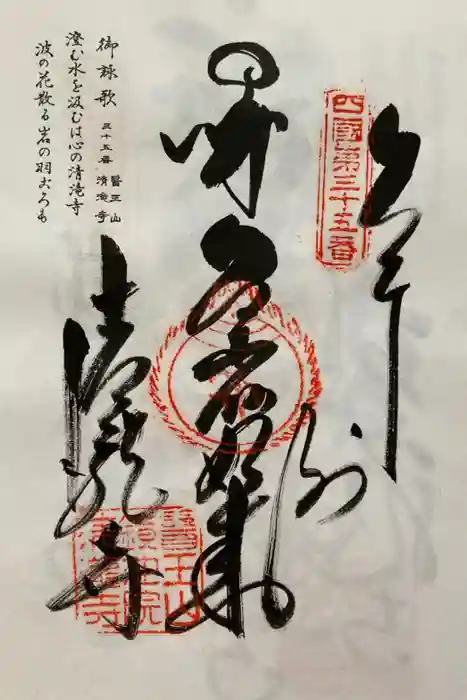 四國第三十五番
奉拝
薬師如来
清瀧寺
醫王山
鏡池院
清瀧寺
御詠歌
三十五番 醫王山 清滝寺
澄む水を汲むは心の清滝寺
波の花散る岩の羽ごろも